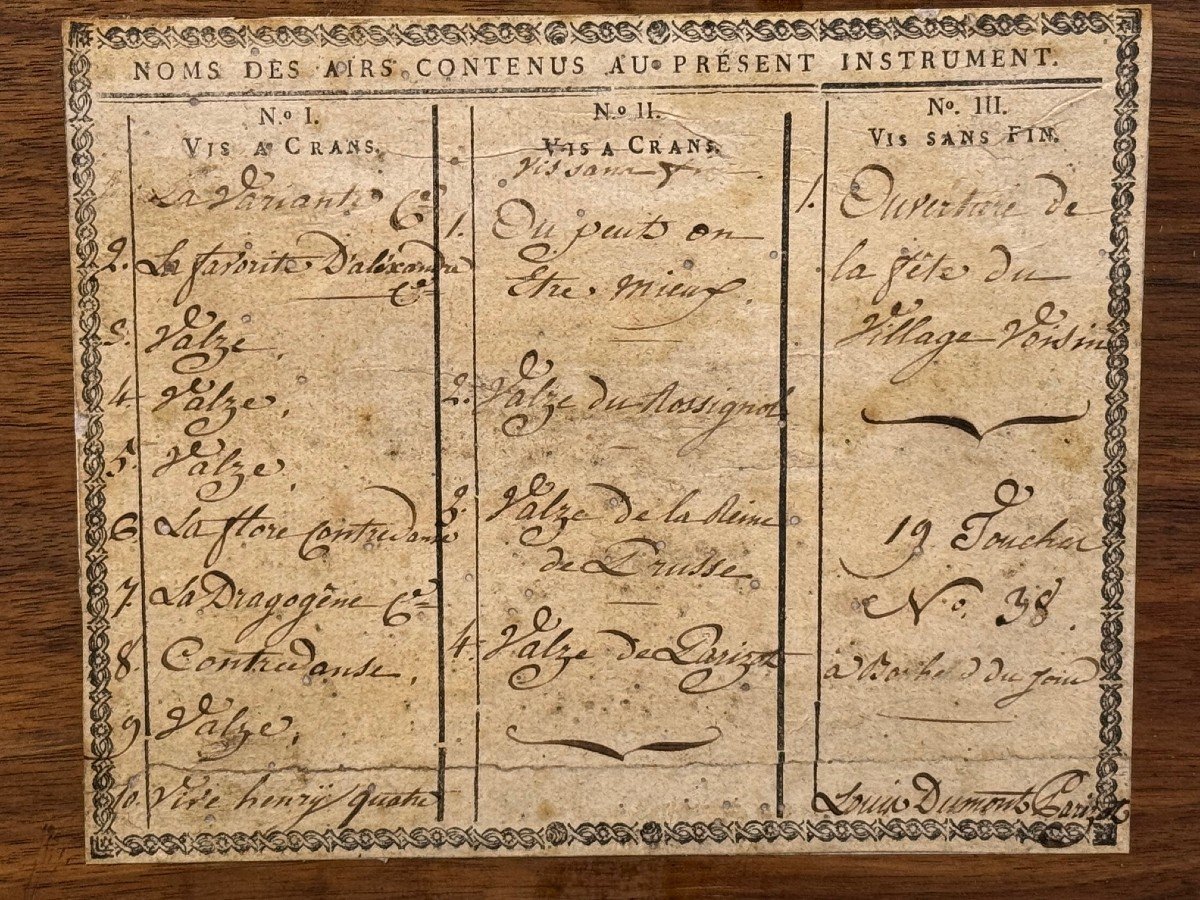 NOMS DES AIRS CONTENUS AU PRÉSENT INSTRUMENT.
N.o I.
VIS A CRANS.
La Variante C.e
2. La favorite D'aléxandre
C.e
3. Valze.
4 Valze.
5. Valze.
6. La flore Contredanse
7. La Dragogêne C.e
8. Contredanse.
9 Valze.
10. Vive henry quatre
N.o II.
VIS A CRANS.
Vis sans fin
1. Ou peut on
Etre Mieux.
2. Valze du Rossignol
3. Valze de la Reine
de Prusse.
4. Valze de
No. III.
VIS SANS FIN.
1. Ouverture de
la fête du
Village Voisin
19 Touches
No. 38.
Louis Dumont